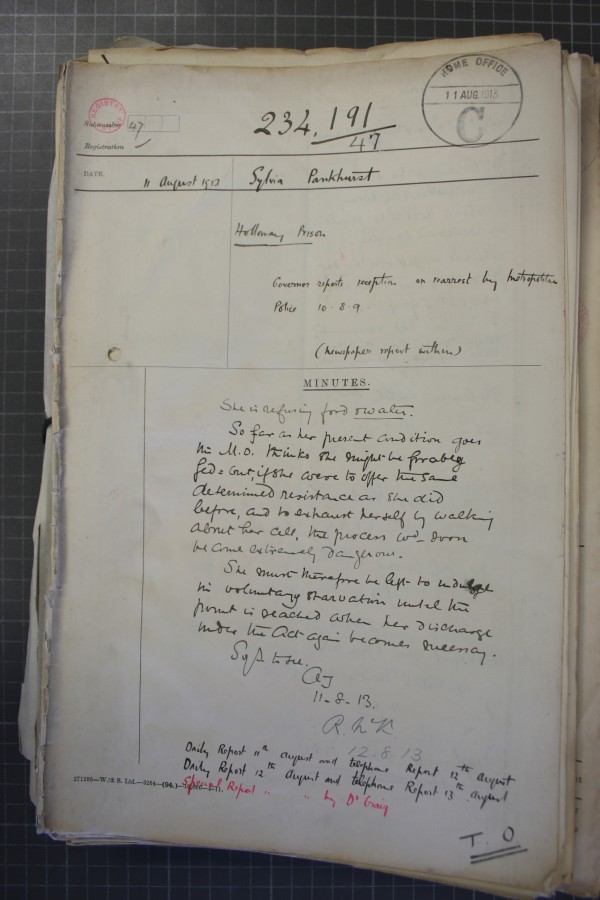 HOME OFFICE
11 AUG. 1913
C
REGISTRY
47
234,191
47
Registration
DATE.
11 August 1913
Sylvia Pankhurst
Holloway Prison
Governor reports reception on rearrest by Metropolitan
Police 10 . 8 .
(Newspaper report within)
MINUTES.
She is refusing food & water.
So far as her present condition goes
the M.O. thinks she might be forcibly
fed: but, if she were to offer the same
determined resistance as she did
before, and to exhaust herself by walking
about her cell, the process wd. soon
become extremely dangerous.
She must therefore be left to indulge
in voluntary starvation until the
point is reached when her discharge
under the Act again becomes necessary.
to see.
11-8-13.
R. McK
12.8.13
Daily Report 11th August and telephone Report 12th August
Daily Report 12th August and telephone Report 13th August
Special Report " " by Dr Craig
W. & S. Ltd.
T. O